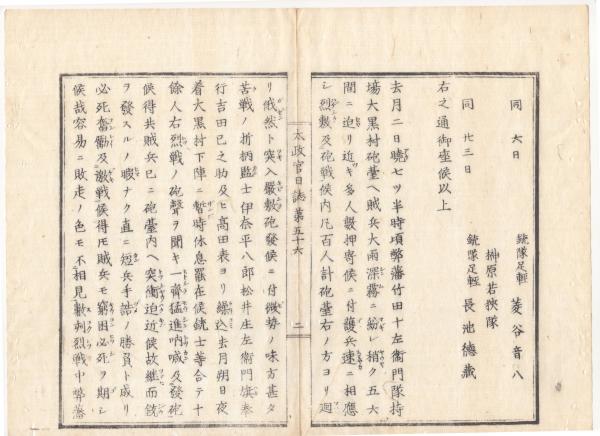 同 六日
銃隊足輕 菱谷音八
榊原若狹隊
同 廿三日
銃隊足輕 長池德藏
右之通御座候以上
去月二日曉七ツ半時頃弊藩竹田十左衞門隊持
場大黒村砲臺ヘ賊兵大雨深霧ニ紛レ稍ク五六
間ニ迫リ近ギ多人數押寄候ニ付護兵速ニ相應
シ烈敷及砲戰候内凡百人計砲臺右ノ方ヨリ廻
太政官日誌第五十六
二
リ俄然ト突入嚴敷砲發候ニ付微勢ノ味方甚タ
苦戰ノ折柄監士伊奈平八郎松井庄左衞門旗奉
行吉田巳之助及ヒ高田表ヨリ繰込去月朔日夜
着大黒村下陣ニ暫時休息罷在候銃士等合テ十
餘人右烈戰ノ砲聲ヲ聞キ一齊猛進吶喊及發砲
候得共賊兵已ニ砲臺内ヘ突衝迫近候故繼而銃
ヲ發スルノ暇ナク直ニ短兵手詰ノ勝負ト成リ
必死奮勵及激戰候得トモ賊兵モ窮困必死ヲ期シ
候哉容易ニ敗走ノ色モ不相見數刺烈戰中弊藩